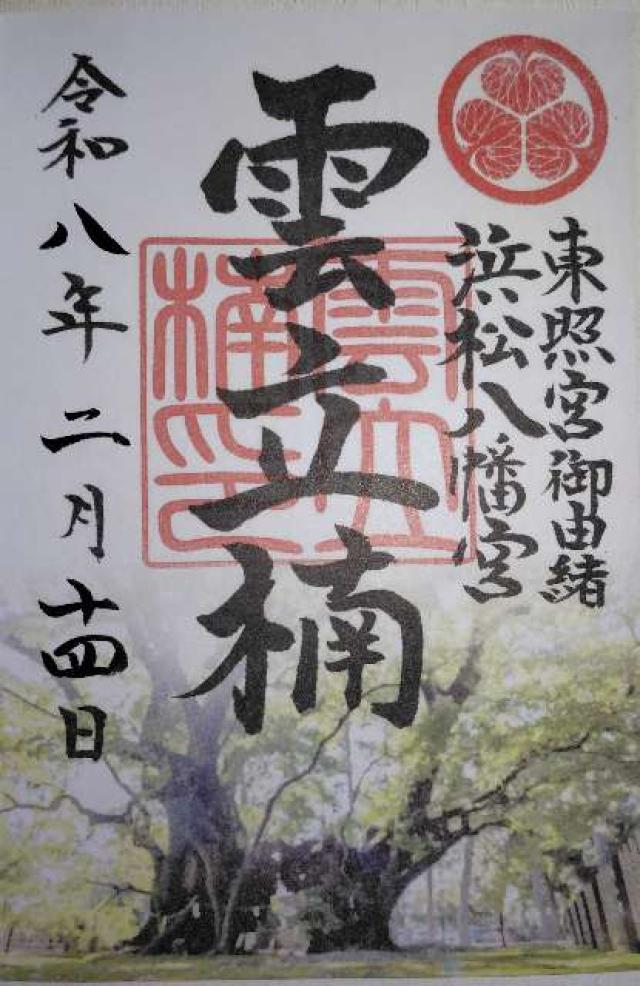 東照宮御由緒
浜松八幡宮
雲立楠
雲立楠印
令和八年二月十四日